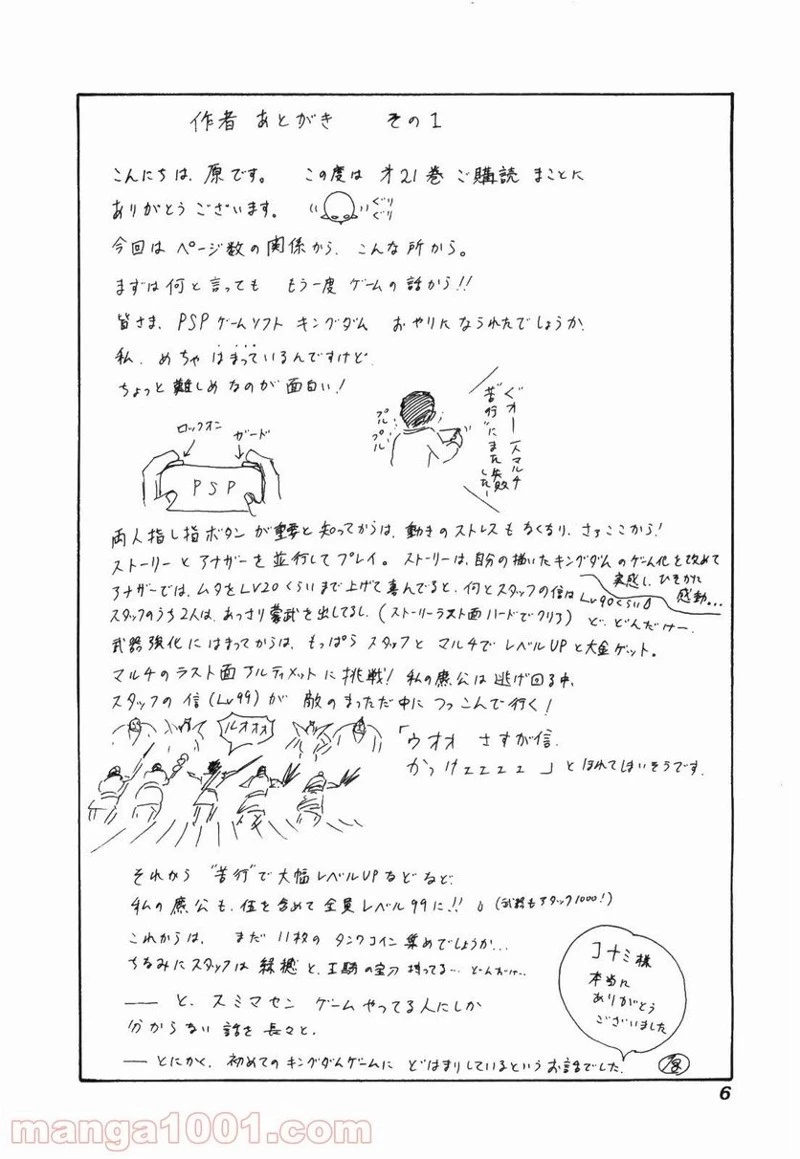 作者 あとがき その1
こんにちは、原です。 この度は 才21巻 ご購読 まことに
ありがとうございます。 ぐり ぐり
今回は ページ数の関係から、こんな所から。
まずは何と言っても もう一度 ゲームの話から!!
皆さま、PSPゲームソフト キングダム おやりになられたでしょうか。
私、めちゃ はまっているんですけど、
ちょっと難しめなのが面白い!
ロックオン
ガード
PSP
プル プル
ぐオー 一人マルチ
"苦行"にまた失敗
したー
両人指し指ボタンが重要と知ってからは、動きのストレスもなくなり、さぁここから!
ストーリーとアナザーを並行してプレイ。ストーリーは、自分の描いたキングダムのゲーム化を改めて
実感し、ひそかに
感動...
アナザーでは、ムタをLV20くらいまで上げて喜んでると、何とスタッフの信はLv90くらい
スタッフのうち2人は、あっさり蒙武を出してるし、(ストーリーラスト面ハードでクリア) ど、どんだけー
武器強化にはまってからは、もっぱら スタッフと マルチで レベルUPと大金ゲット。
マルチのラスト面アルティメットに挑戦! 私の麃公は逃げ回る中、
スタッフの信(Lv99)が 敵のまっただ中に つっこんで行く!
ルオオオ
「ウオオ さすが信、
かっけェェェェ」とほれてしまいそうです。
それから "苦行"で大幅レベルUPなどなど、
私の麃公も、伍を含めて全員レベル99に!! (武器もアタック1000!)
これからは、まだ11枚の タンクコイン集めでしょうか...
ちなみにスタッフは 緑穂と、王騎の宝刀 持ってる... どんだけ...
―― と、スミマセン ゲームやってる人にしか
分からない話を長々と。
―― とにかく、初めてのキングダムゲームに どはまりしているというお話でした。
コナミ様
本当に
ありがとう
ございました
原
6
manga1001.com